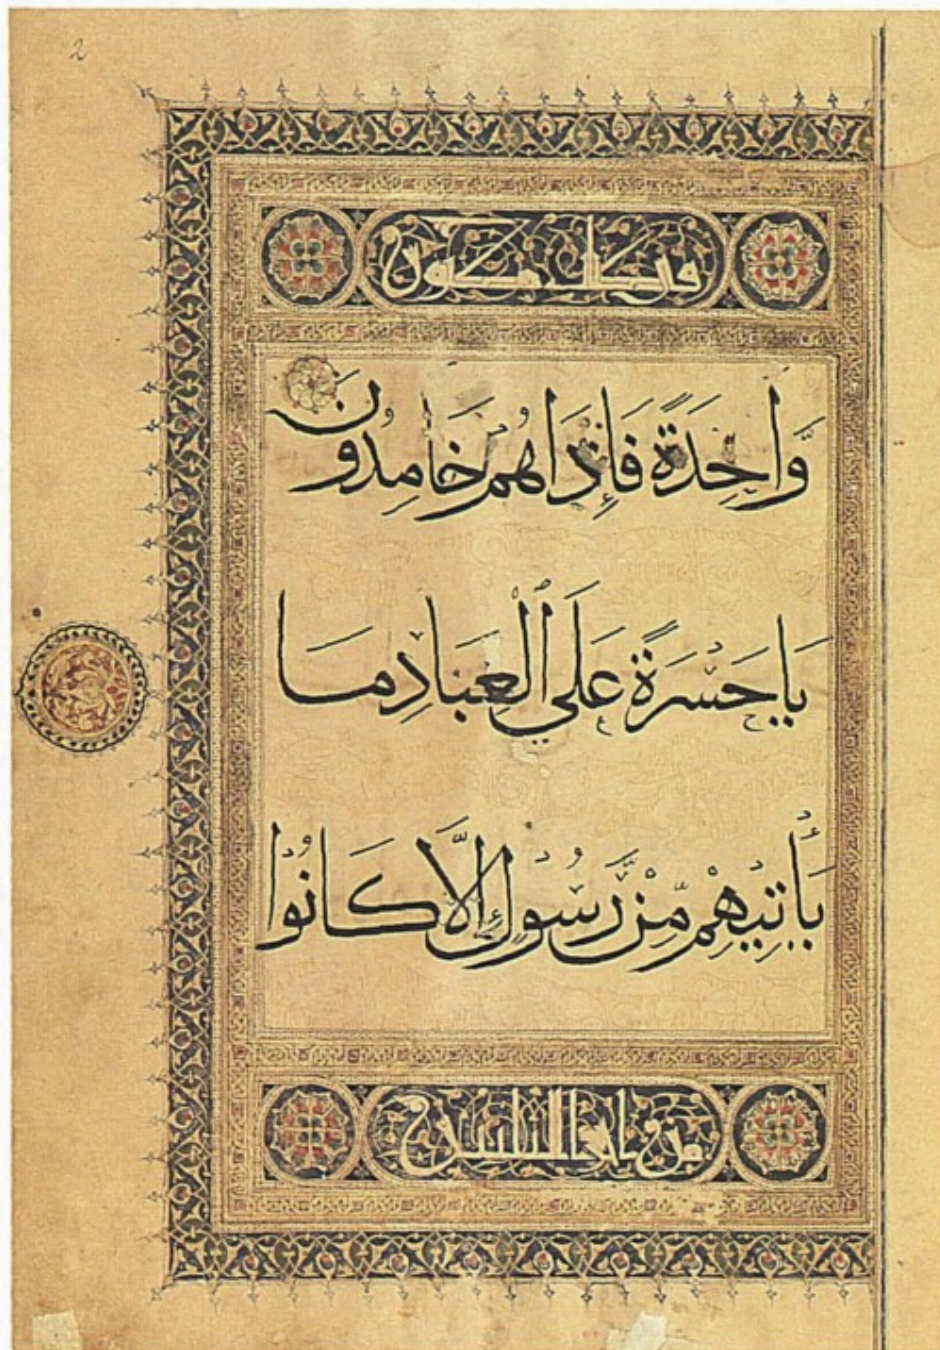 2
وَّاحِدَةً فَإِذَا هُمْ خَامِدُونَ
يَا حَسْرَةً عَلَى ٱلْعِبَادِ مَا
يَأْتِيهِمْ مِّنْ رَّسُولٍ إِلَّا كَانُوا